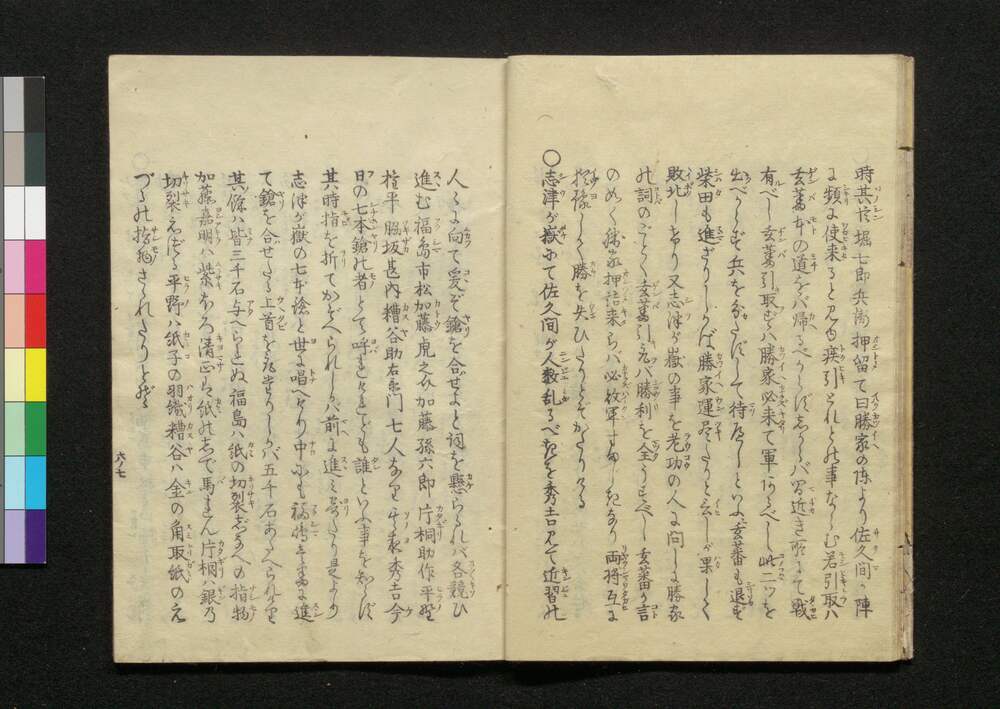 時其於堀七郎兵衛押留て曰勝家の陣より佐久間が陣
に頻に使来ると見ゆ疾引とれとの事ならむ若引取ハ
玄蕃本の道をバ帰るべからずしからバ間近き所にて戦
有べし玄蕃引取ずハ勝家必来て軍あるべし此二ツを
出べからず兵を分たずして待べしといふ玄蕃も退ず
柴田も進ざりしかば勝家運尽たりと云しが果して
敗北しけり又志津が嶽の事を老功の人に問しに勝家
の詞のごとく玄蕃引取バ勝利を全うすべし玄蕃が言
のめく勝家押詰来らバ必敗軍すまじきなり両将互に
して勝を失ひたりとぞかたりける
○志津が嶽にて佐久間が人数乱るべきを秀吉見て近習の
人々に向て爰ぞ鎗を合せよと詞を懸らるれバ各競ひ
進む福島市松加藤虎之介加藤孫六郎片桐助作平野
権平脇坂甚内糟谷助右衛門七人なり其夜秀吉今
日の七本鎗の者とて呼れけれども誰といふ事を知らず
其時指を折てかぞへられしバ前に進み寄たり是より
志津が嶽の七本鎗と世に唱へけり中にも福島は真先に進
て鎗を合せたる上首を取来りしかバ五千石あたへられけり
其餘ハ皆三千石与へられぬ福島ハ紙の切裂しなへの指物
加藤嘉明ハ紫ほろ清正ハ紙のしで馬れん片桐ハ銀乃
切裂えづる平野ハ紙子の羽織糟谷ハ金の角取紙のえ
づるの指物さされたりとぞ
六ノ七